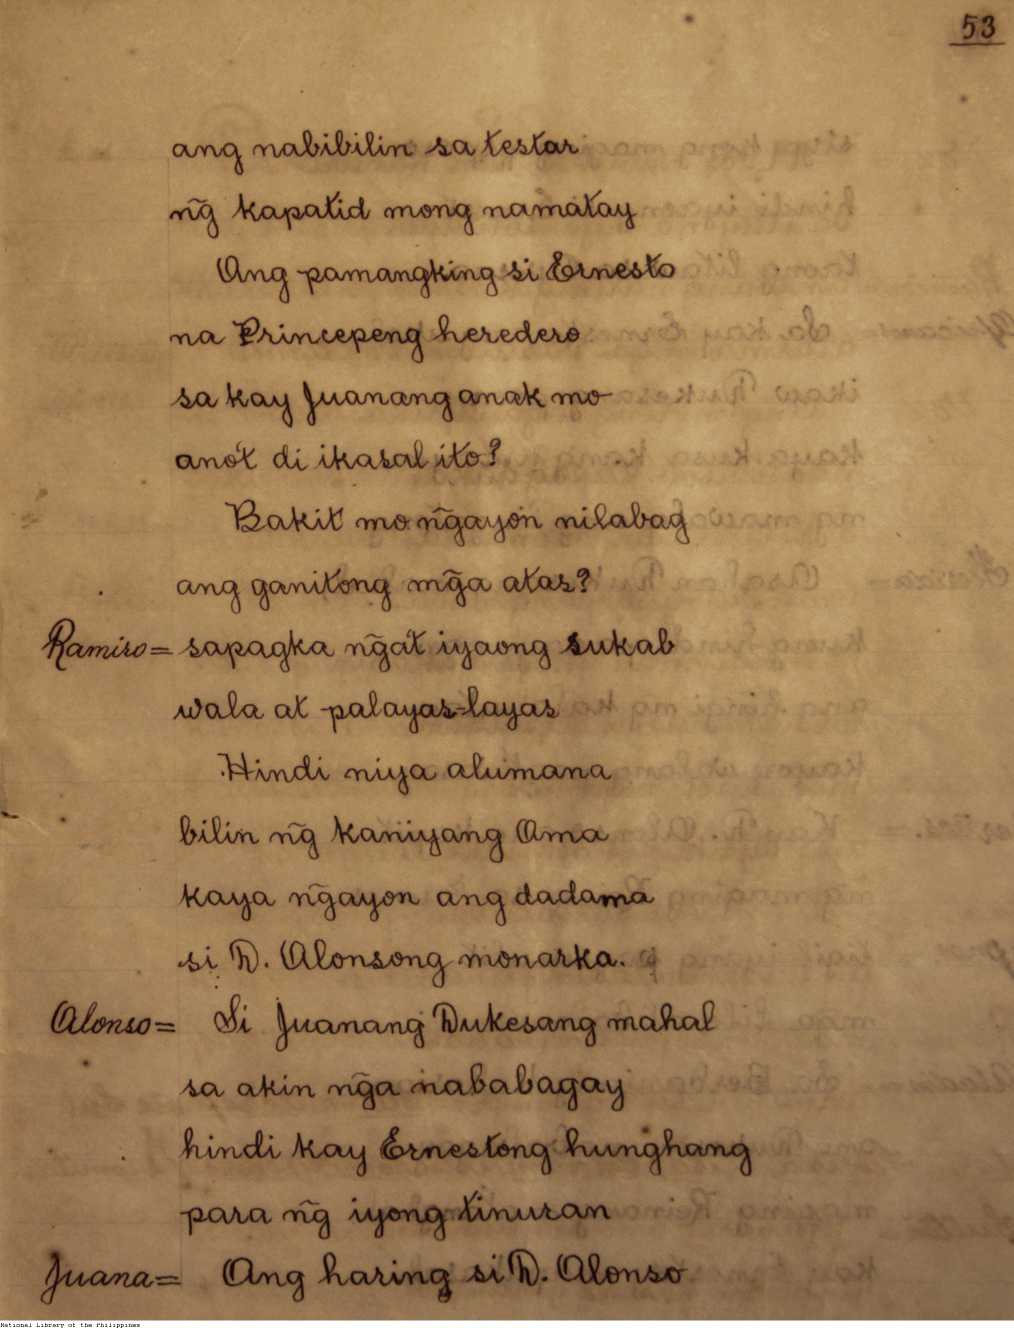 53
ang nabibilin sa testar
ng̃ kapatid mong namatay
Ang pamangking si Ernesto
na Princepeng heredero
sa kay Juanang anak mo
ano't di ikasal ito?
Bakit mo ng̃ayon nilabag
ang ganitong mg̃a atas?
Ramiro= sapagka ng̃a't iyaong sukab
wala at palayas-layas
Hindi niya alumana
bilin ng̃ kaniyang Ama
kaya ng̃ayon ang dadama
si D. Alonsong monarka.
Alonso= Si Juanang Dukesang mahal
sa akin ng̃a nababagay
hindi kay Ernestong hunghang
para ng̃ iyong tinuran
Juana= Ang haring si D. Alonso
National Library of the Philippines